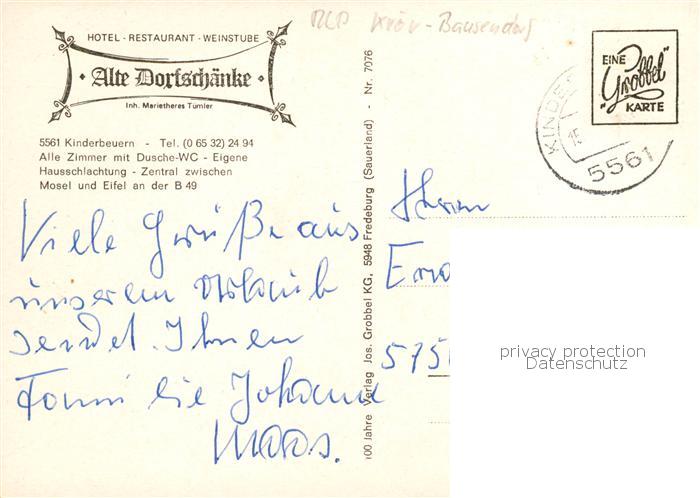 RLP Kröv-Bausendorf
HOTEL - RESTAURANT - WEINSTUBE
· Alte Dorfschänke ·
Inh. Marietheres Tumler
5561 Kinderbeuern - Tel. (0 65 32) 24 94
Alle Zimmer mit Dusche-WC - Eigene
Hausschlachtung - Zentral zwischen
Mosel und Eifel an der B 49
Viele Grüße aus
unserem Urlaub
sendet Ihnen
Familie Johann
Maas.
100 Jahre Verlag Jos. Grobbel KG, 5948 Fredeburg (Sauerland) - Nr. 7076
EINE
"Grobbel"
KARTE
KINDE
15
5561
Herrn
575
privacy protection
Datenschutz